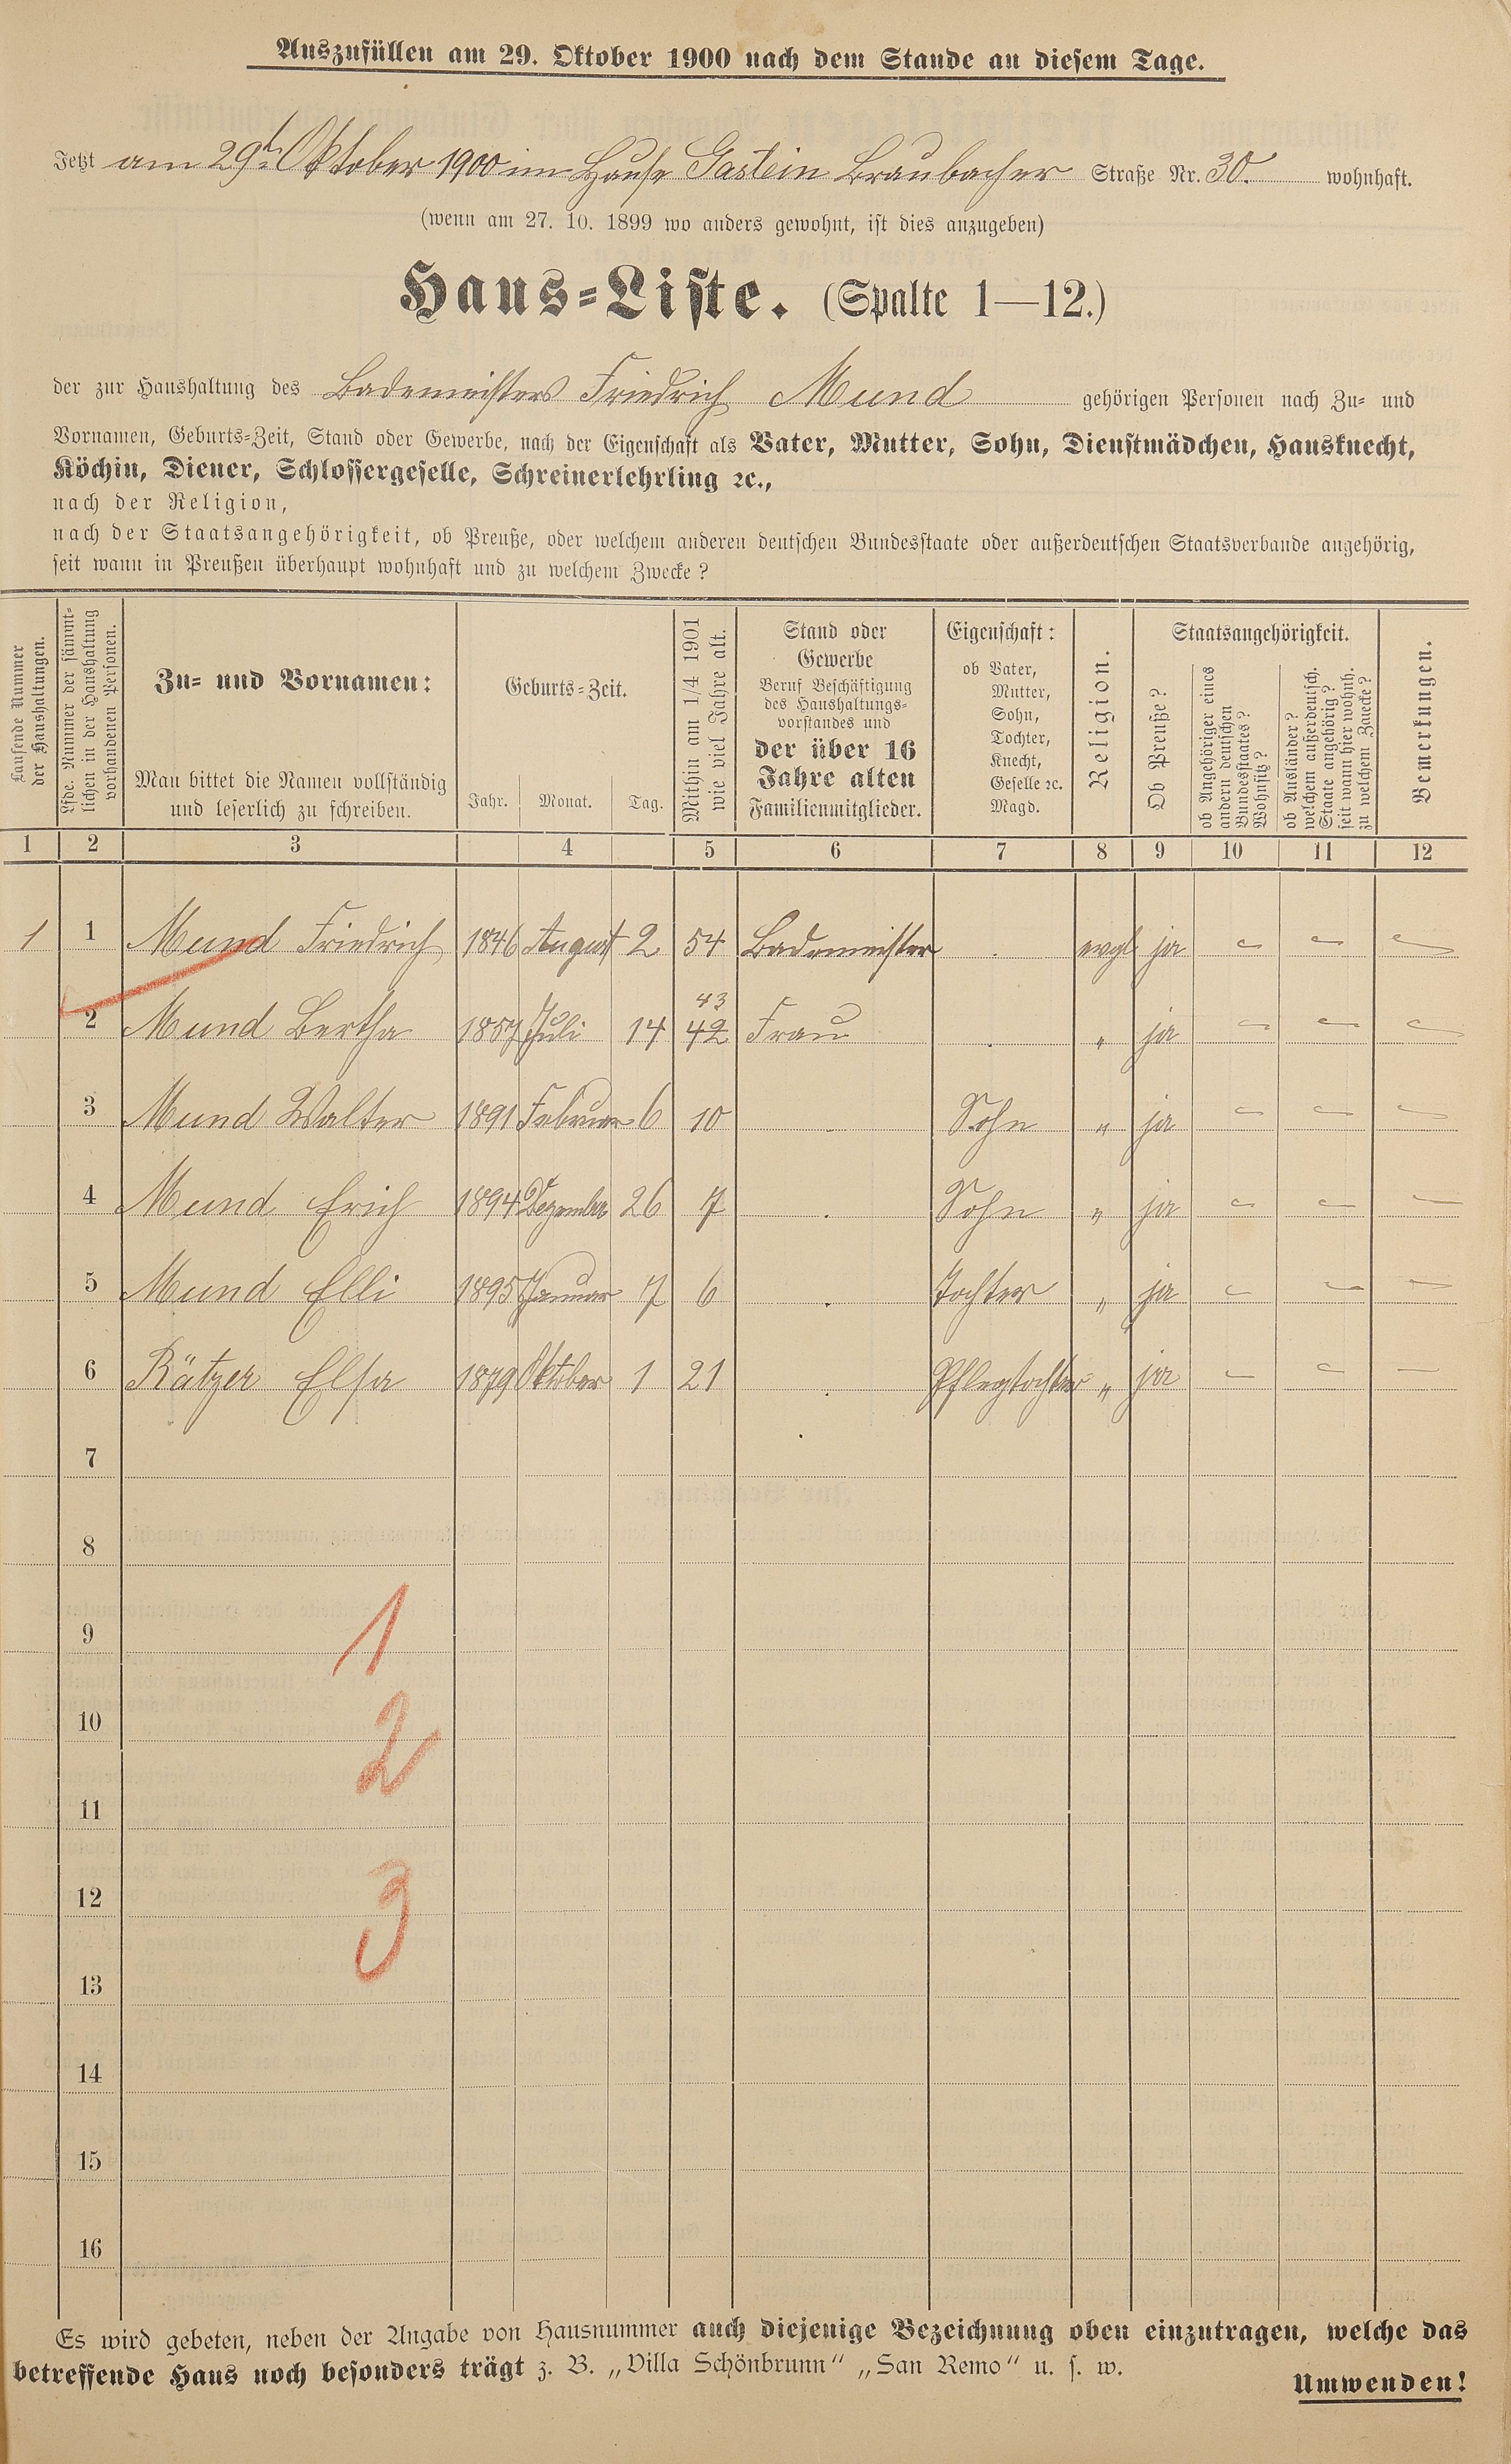 Auszufüllen am 29. Oktober 1900 nach dem Stande an diesem Tage.
Jetzt am 29t. Oktober 1900 im Hause Gastein Braubacher Straße Nr. 30. wohnhaft.
(wenn am 27. 10. 1899 wo anders gewohnt, ist dies anzugeben)
Haus-Liste. (Spalte 1—12.)
der zur Haushaltung des Bademeisters Friedrich Mund gehörigen Personen nach Zu- und
Vornamen, Geburts-Zeit, Stand oder Gewerbe, nach der Eigenschaft als Vater, Mutter, Sohn, Dienstmädchen, Hausknecht,
Köchin, Diener, Schlossergeselle, Schreinerlehrling ꝛc.,
nach der Religion,
nach der Staatsangehörigkeit, ob Preuße, oder welchem anderen deutschen Bundesstaate oder außerdeutschen Staatsverbande angehörig,
seit wann in Preußen überhaupt wohnhaft und zu welchem Zwecke?
Laufende Nummer
der Haushaltungen.
Lfde. Nummer der sämmt-
lichen in der Haushaltung
vorhandenen Personen.
Zu- und Vornamen:
Man bittet die Namen vollständig
und leserlich zu schreiben.
Geburts-Zeit.
Jahr. Monat. Tag.
Mithin am 1/4 1901
wie viel Jahre alt.
Stand oder
Gewerbe
Beruf Beschäftigung
des Haushaltungs-
vorstandes und
der über 16
Jahre alten
Familienmitglieder.
Eigenschaft:
ob Vater,
Mutter,
Sohn,
Tochter,
Knecht,
Geselle ꝛc.
Magd.
Religion.
Staatsangehörigkeit.
Ob Preuße?
ob Angehöriger eines
andern deutschen
Bundesstaates?
Wohnsitz?
ob Ausländer?
welchem außerdeutsch.
Staate angehörig?
seit wann hier wohnh.
zu welchem Zwecke?
Bemerkungen.
1 2 3 4 5 6 7 8 9 10 11 12
1 1 Mund Friedrich 1846 August 2 54 Bademeister evgl ja – – –
43
2 Mund Bertha 1857 Juli 14 42 Frau " ja – – –
3 Mund Walter 1891 Februar 6 10 Sohn " ja – – –
4 Mund Erich 1894 Dezember 26 7 Sohn " ja – – –
5 Mund Elli 1895 Januar 7 6 Tochter " ja – – –
6 Rätzer Elsa 1879 Oktober 1 21 Pflegtochter " ja – – –
7
8
9
1
10
2
11
12
3
13
14
15
16
Es wird gebeten, neben der Angabe von Hausnummer auch diejenige Bezeichnung oben einzutragen, welche das
betreffende Haus noch besonders trägt z. B. „Villa Schönbrunn“ „San Remo“ u. s. w.
Umwenden!